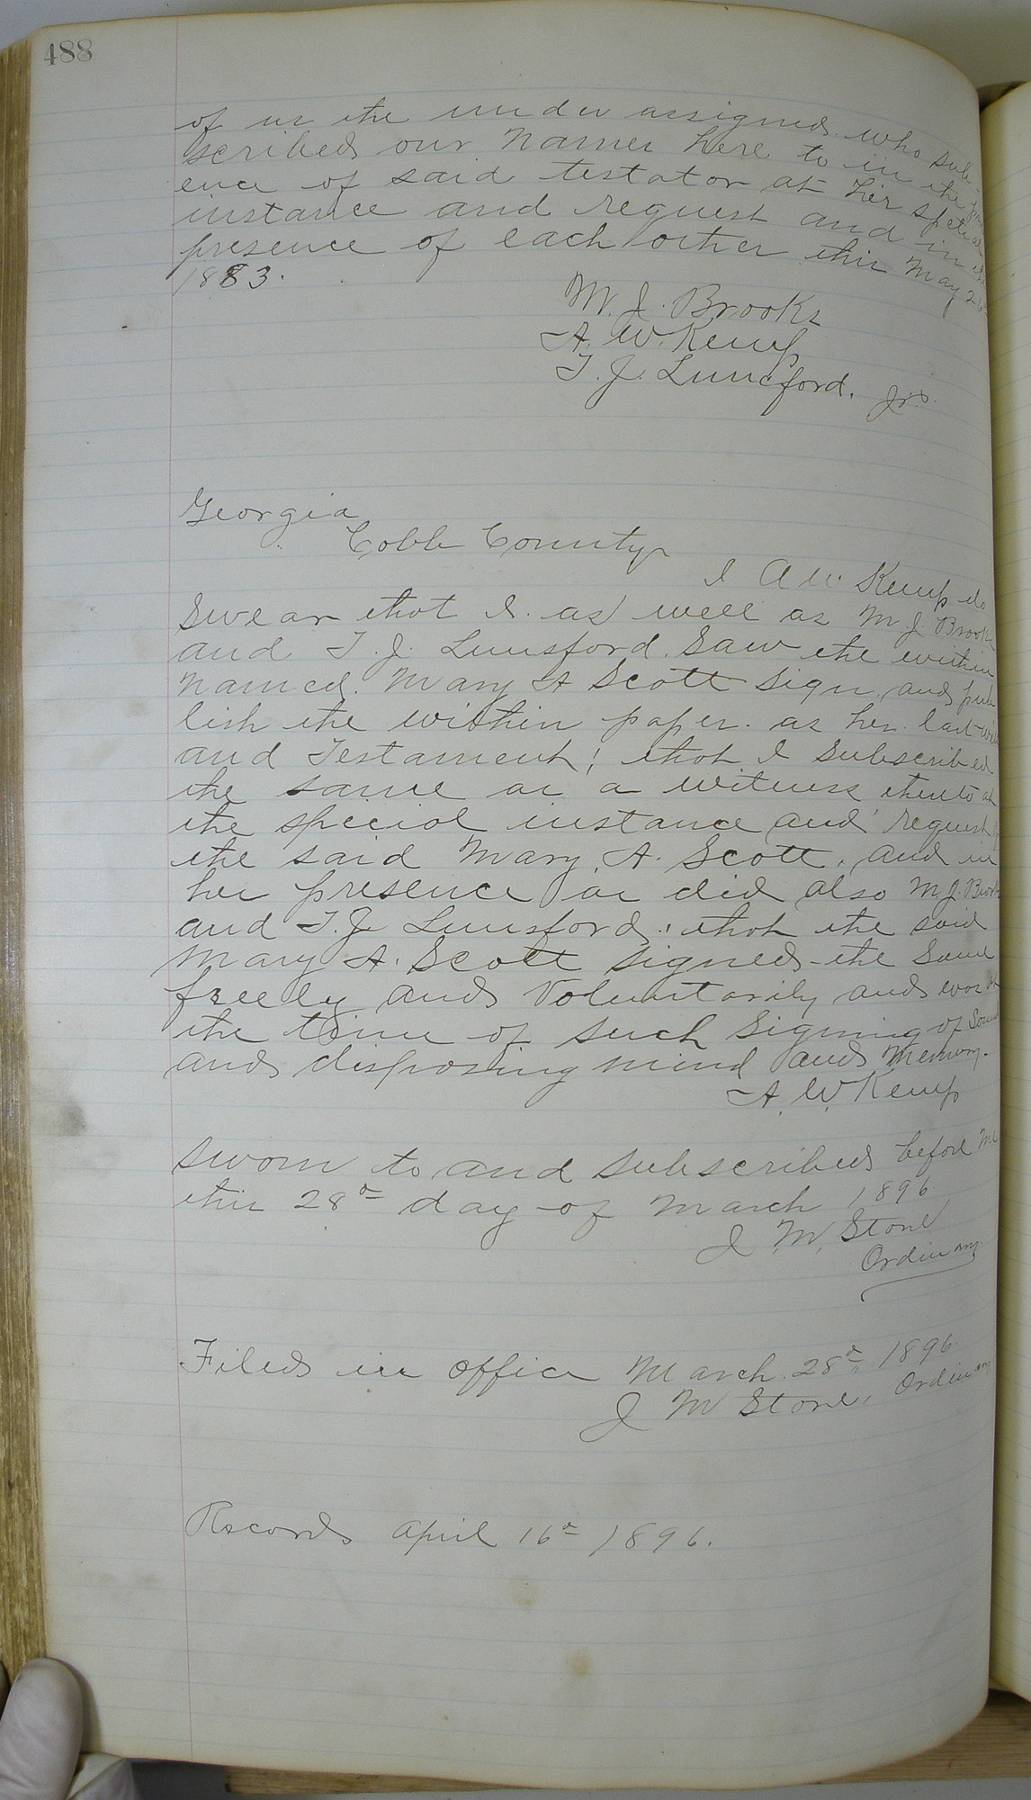 488
of us the under assigned who sub-
scribed our names here to in the pres
ence of said testator at her special
instance and request and in the
presence of each other this May 26
1883.
M. J. Brooks
A. W. Kemp
T. J. Lunsford. Jr.
Georgia
Cobb County
I A W. Kemp do
Swear that I. as well as M. J Brooks
and T. J. Lunsford. Saw the within
named. Mary A Scott Sign. and pub
lish the within paper. as her last will
and Testament; that I Subscribed
the same as a witness thereto at
the special instance and request of
the said Mary A. Scott. and in
her presence as did also M. J. Brooks
and T. J. Lunsford, that the said
Mary A. Scott signed the Same
freely and Voluntarily and was at
the time of such Signing of Sound
and disposing mind and Memory.
A. W. Kemp
Sworn to and subscribed before me
this 28th day of March 1896
J. M. Stone
Ordinary
Filed in office March 28th 1896
J M Stone, Ordinary
Record April 16th 1896.